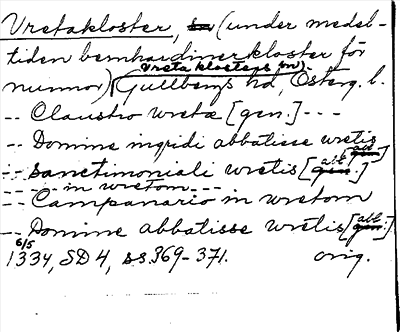 Vretakloster, (under medel-
tiden bernhardinerkloster för
Vreta klosters sn)
nunnor) Gullbergs hd, Österg. l.
-- Claustro wretæ [gen.] ---
-- Domine ingridi abbatisse wretis [abl.]
-- Sanctimoniali wretis [abl.]
---- in wretom ---
-- Campanario in wretom
-- Domine abbatisse wretis [abl.]
6/5
1334, SD 4, s.s. 369-371. orig.